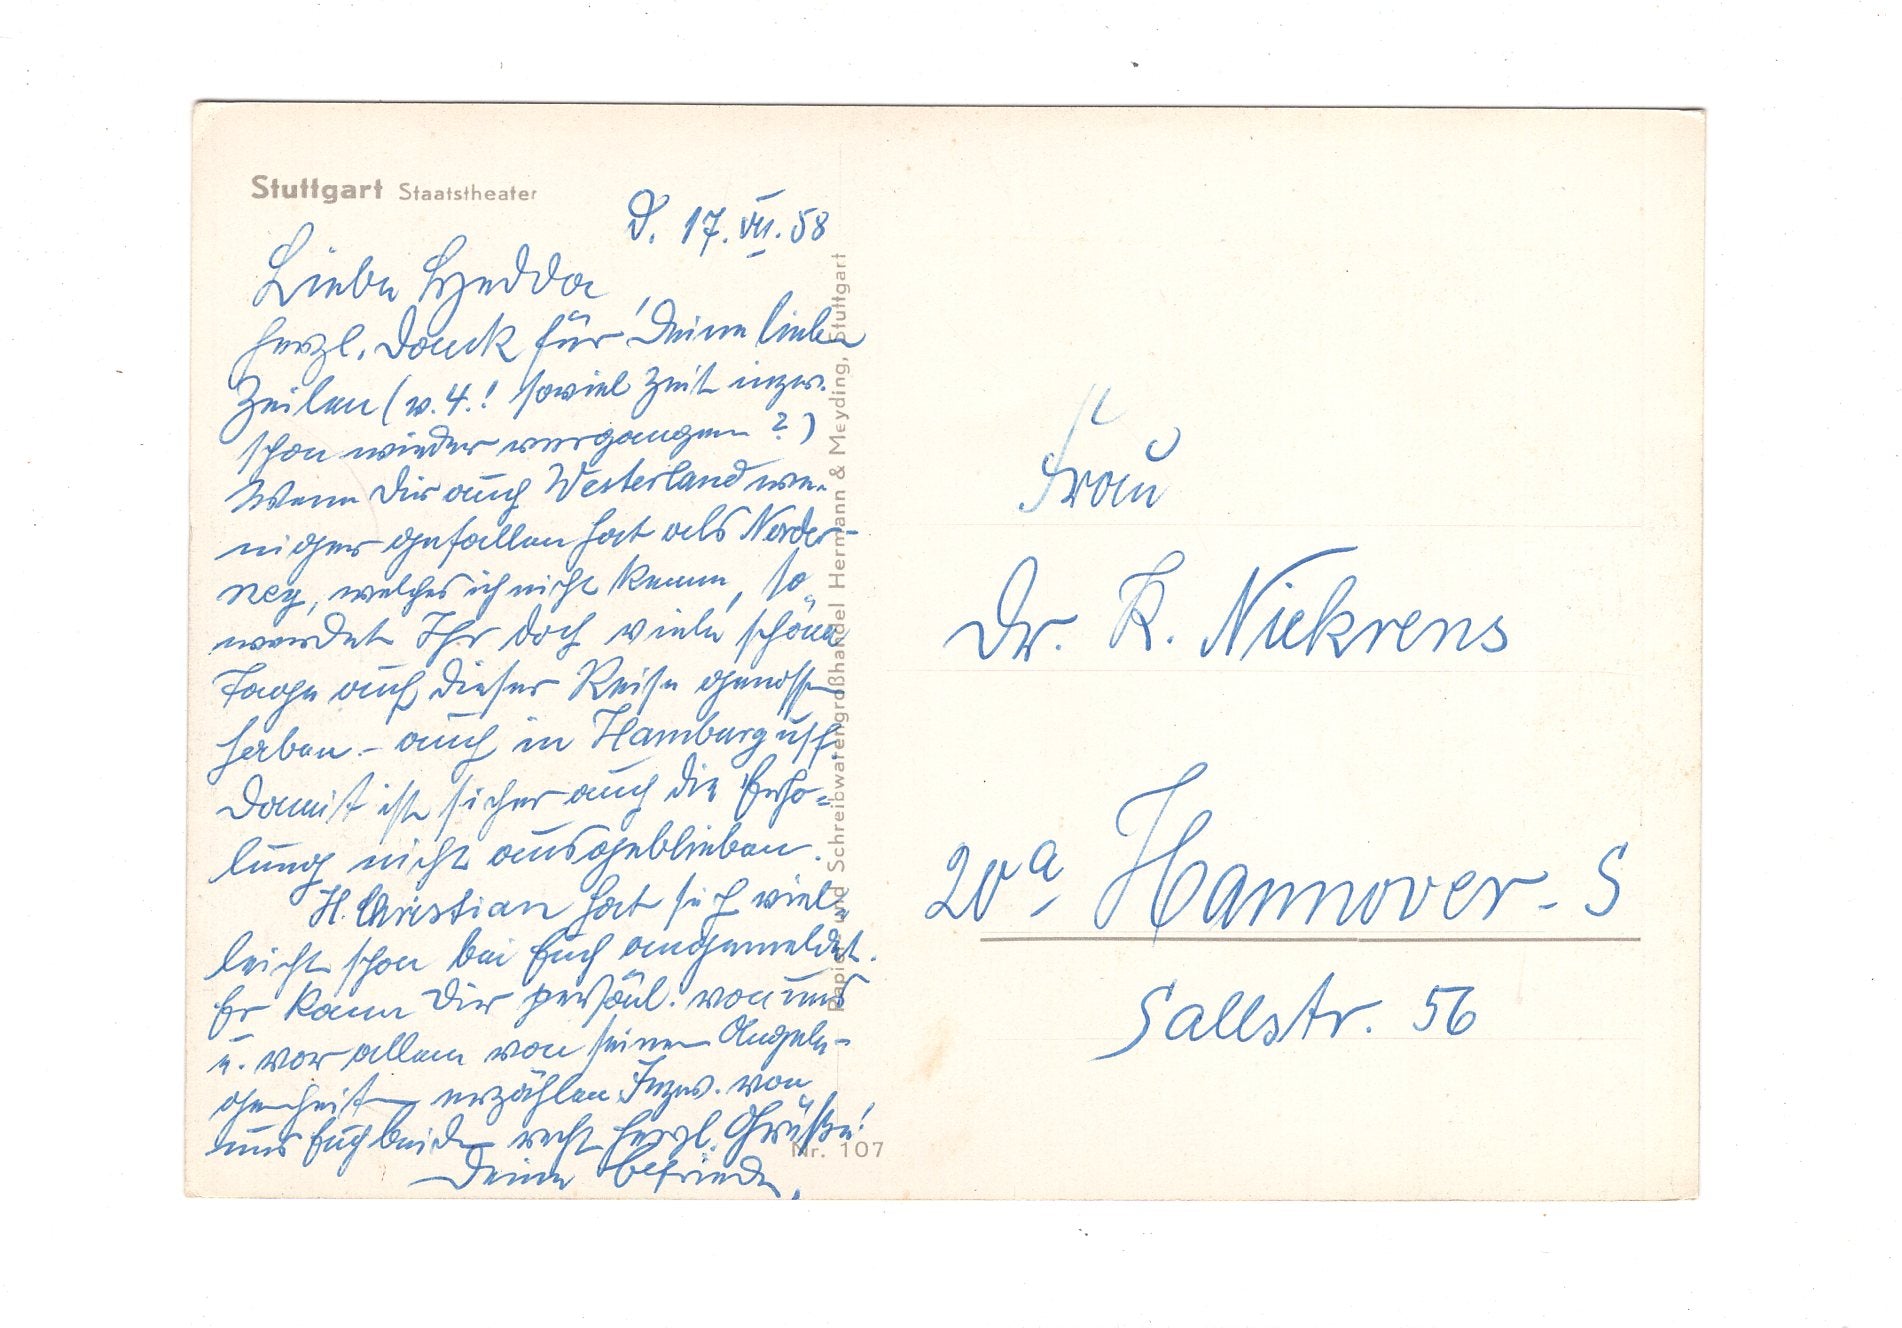 Stuttgart Staatstheater
d. 17. VII. 58
Liebe Hedda,
herzl. Dank für Deine lieben
Zeilen (v. 4.! soviel Zeit inzw.
schon wieder vergangen?)
Wenn Dir auch Westerland we-
niger gefallen hat als Norder-
ney, welches ich nicht kenne, so
werdet Ihr doch viele schöne
Tage auf dieser Reise genossen
haben – auch in Hamburg usf.
Damit ist sicher auch die Erho-
lung nicht ausgeblieben.
H. Christian hat sich viel-
leicht schon bei Euch angemeldet.
Er kann Dir persönl. von uns
u. vor allem von seinen Angele-
genheiten erzählen. Inzw. von
uns Euch beiden recht herzl. Grüße!
Deine
Papier- und Schreibwarengroßhandel Hermann & Meyding, Stuttgart
Nr. 107
Frau
Dr. K. Niekrens
20a Hannover-S
Sallstr. 56